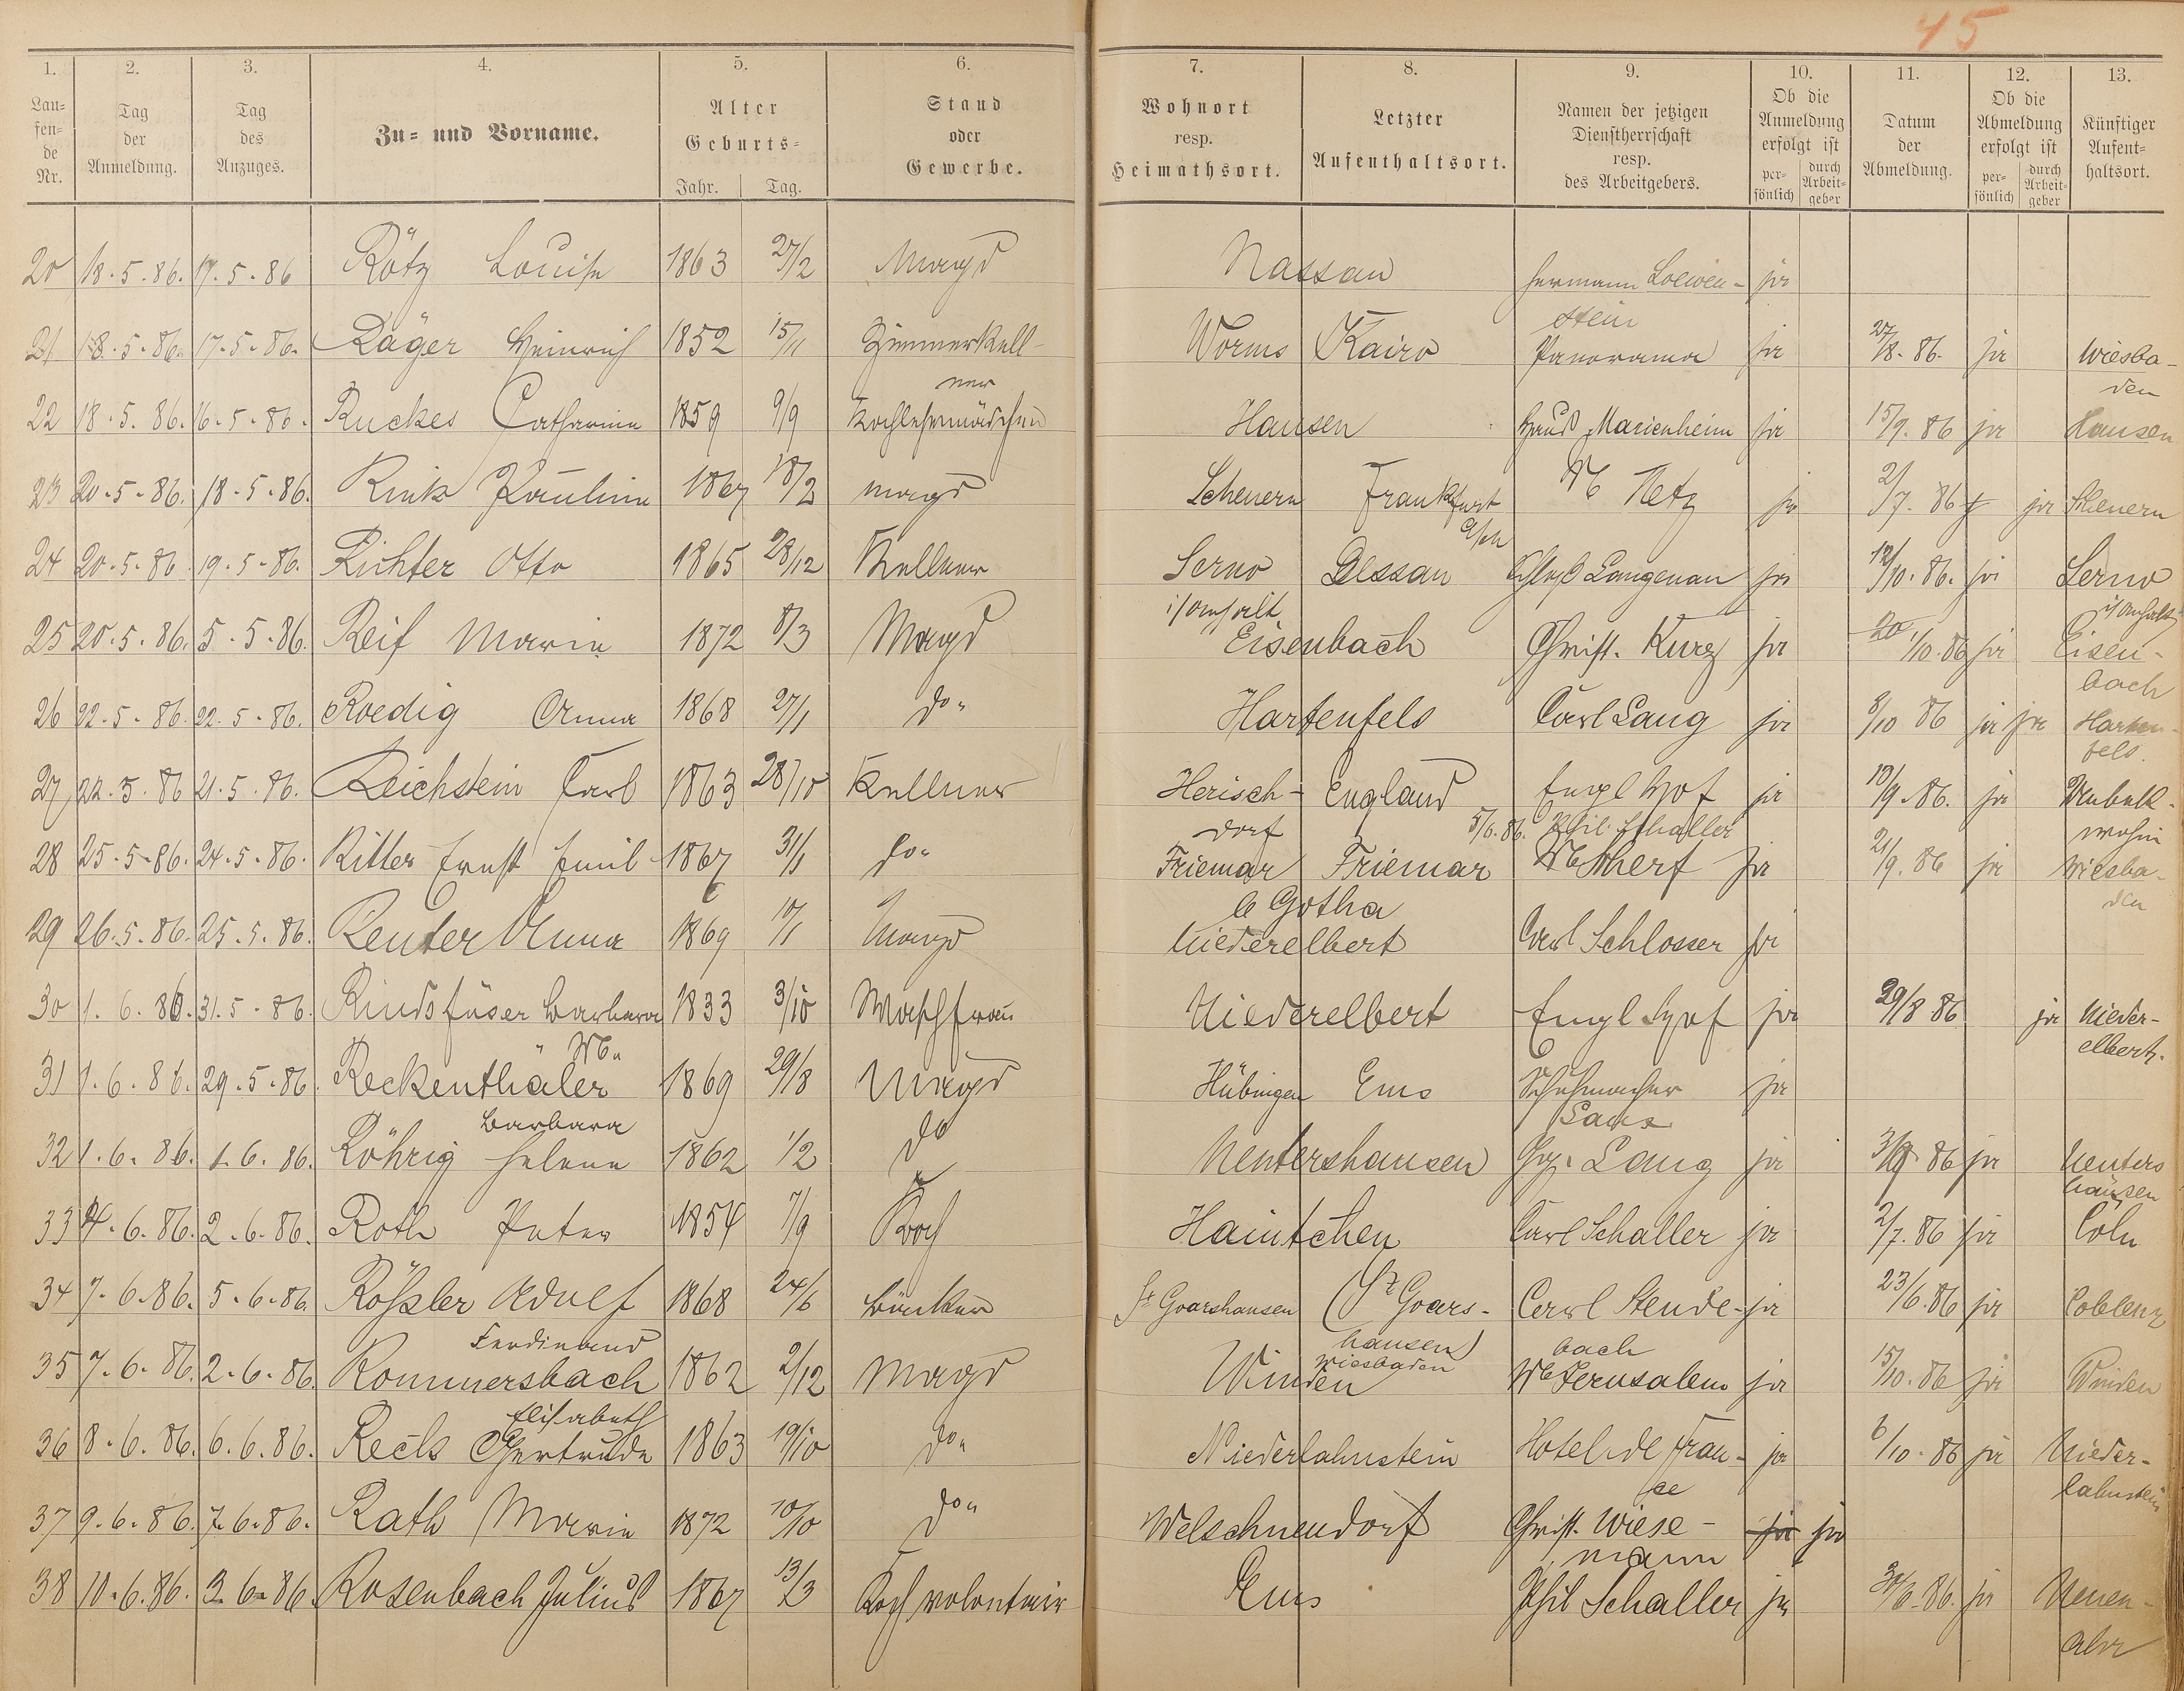 45
1. 2. 3. 4. 5. 6. 7. 8. 9. 10. 11. 12. 13.
Lau=
fen=
de
Nr.
Tag
der
Anmeldung.
Tag
des
Anzuges.
Zu= und Vorname.
Alter
Geburts=
Jahr. Tag.
Stand
oder
Gewerbe.
Wohnort
resp.
Heimathsort.
Letzter
Aufenthaltsort.
Namen der jetzigen
Dienstherrschaft
resp.
des Arbeitgebers.
Ob die
Anmeldung
erfolgt ist
per=
sönlich
durch
Arbeit=
geber
Datum
der
Abmeldung.
Ob die
Abmeldung
erfolgt ist
per=
sönlich
durch
Arbeit=
geber
Künftiger
Aufent=
haltsort.
20 18.5.86. 17.5.86 Rötz Louise 1863 27/2 Magd Nassau Hermann Loewen- ja
stein
21 18.5.86. 17.5.86. Räger Heinrich 1852 15/11 Zimmerkell- Worms Kairo Panorama ja 27/8.86. ja Wiesba-
ner den
22 18.5.86. 16.5.86. Ruckes Catharina 1859 9/9 Kochlehrmädchen Hausen Haus Marienheim ja 15/9.86 ja Hausen
23 20.5.86. 18.5.86. Rink Pauline 1867 18/2 Magd Scheuern Frankfurt We Netz ja 2/7.86 ja Scheuern
a/M
24 20.5.86. 19.5.86. Richter Otto 1865 28/12 Kellner Serno Dessau Schloß Langenau ja 12/10.86. ja Serno
i/Anhalt i/Anhalt
25 20.5.86. 5.5.86. Reif Marie 1872 8/3 Magd Eisenbach Christ. Kurz ja 20 1/10.86 ja Eisen-
bach
26 22.5.86. 22.5.86. Roedig Anna 1868 27/1 do" Hartenfels Carl Lang ja 8/10 86 ja ja Harten-
fels.
27 22.5.86 21.5.86. Reichstein Carl 1863 28/10 Kellner Herisch- England Engl Hof ja 10/9.86. ja Unbek.
dorf 5/6.86. Phil. Schaller wohin
28 25.5.86. 24.5.86. Ritter Ernst Emil 1867 31/1 do" Friemar Friemar We Scherf ja 21/9.86 ja Wiesba-
b Gotha den
29 26.5.86. 25.5.86. Reuter Anna 1869 10/1 Magd Niederelbert Carl Schlosser ja
30 1.6.86. 31.5.86. Rindsfüser Barbara 1833 3/10 Waschfrau Niederelbert Engl Hof ja 29/8 86 ja Nieder-
We elbert.
31 1.6.86. 29.5.86. Reckenthäler 1869 29/8 Magd Hübingen Ems Schuhmacher ja
Barbara
32 1.6.86. 1.6.86. Röhrig Helene 1862 1/2 do Nentershausen Lang ja 86 ja Nenters
hausen
33 4.6.86. 2.6.86. Roth Peter 1854 7/9 Koch Haintchen Carl Schaller ja 2/7.86 ja Cöln
34 7.6.86. 5.6.86. Rößler Adolf 1868 24/6 Bäcker St Goarshausen (St Goars- Carl Steude- ja 23/6.86 ja Coblenz
Ferdinand hausen) bach
35 7.6.86. 2.6.86. Rommersbach 1862 2/12 Magd Winden Wiesbaden We Jerusalem ja 15/10.86 ja Winden
Elisabeth
36 8.6.86. 6.6.86. Recls Gertrude 1863 19/10 do" Niederlahnstein Hotel de Fran- ja 6/10.86 ja Nieder-
ce lahnstein
37 9.6.86. 7.6.86. Rath Marie 1872 10/10 do" Welschneudorf Christ. Wiese- ja ja
mann
38 10.6.86. 3.6.86 Rosenbach Julius 1867 13/3 Koch volontair Ems Phil Schaller ja 86. ja Neuen-
ahr